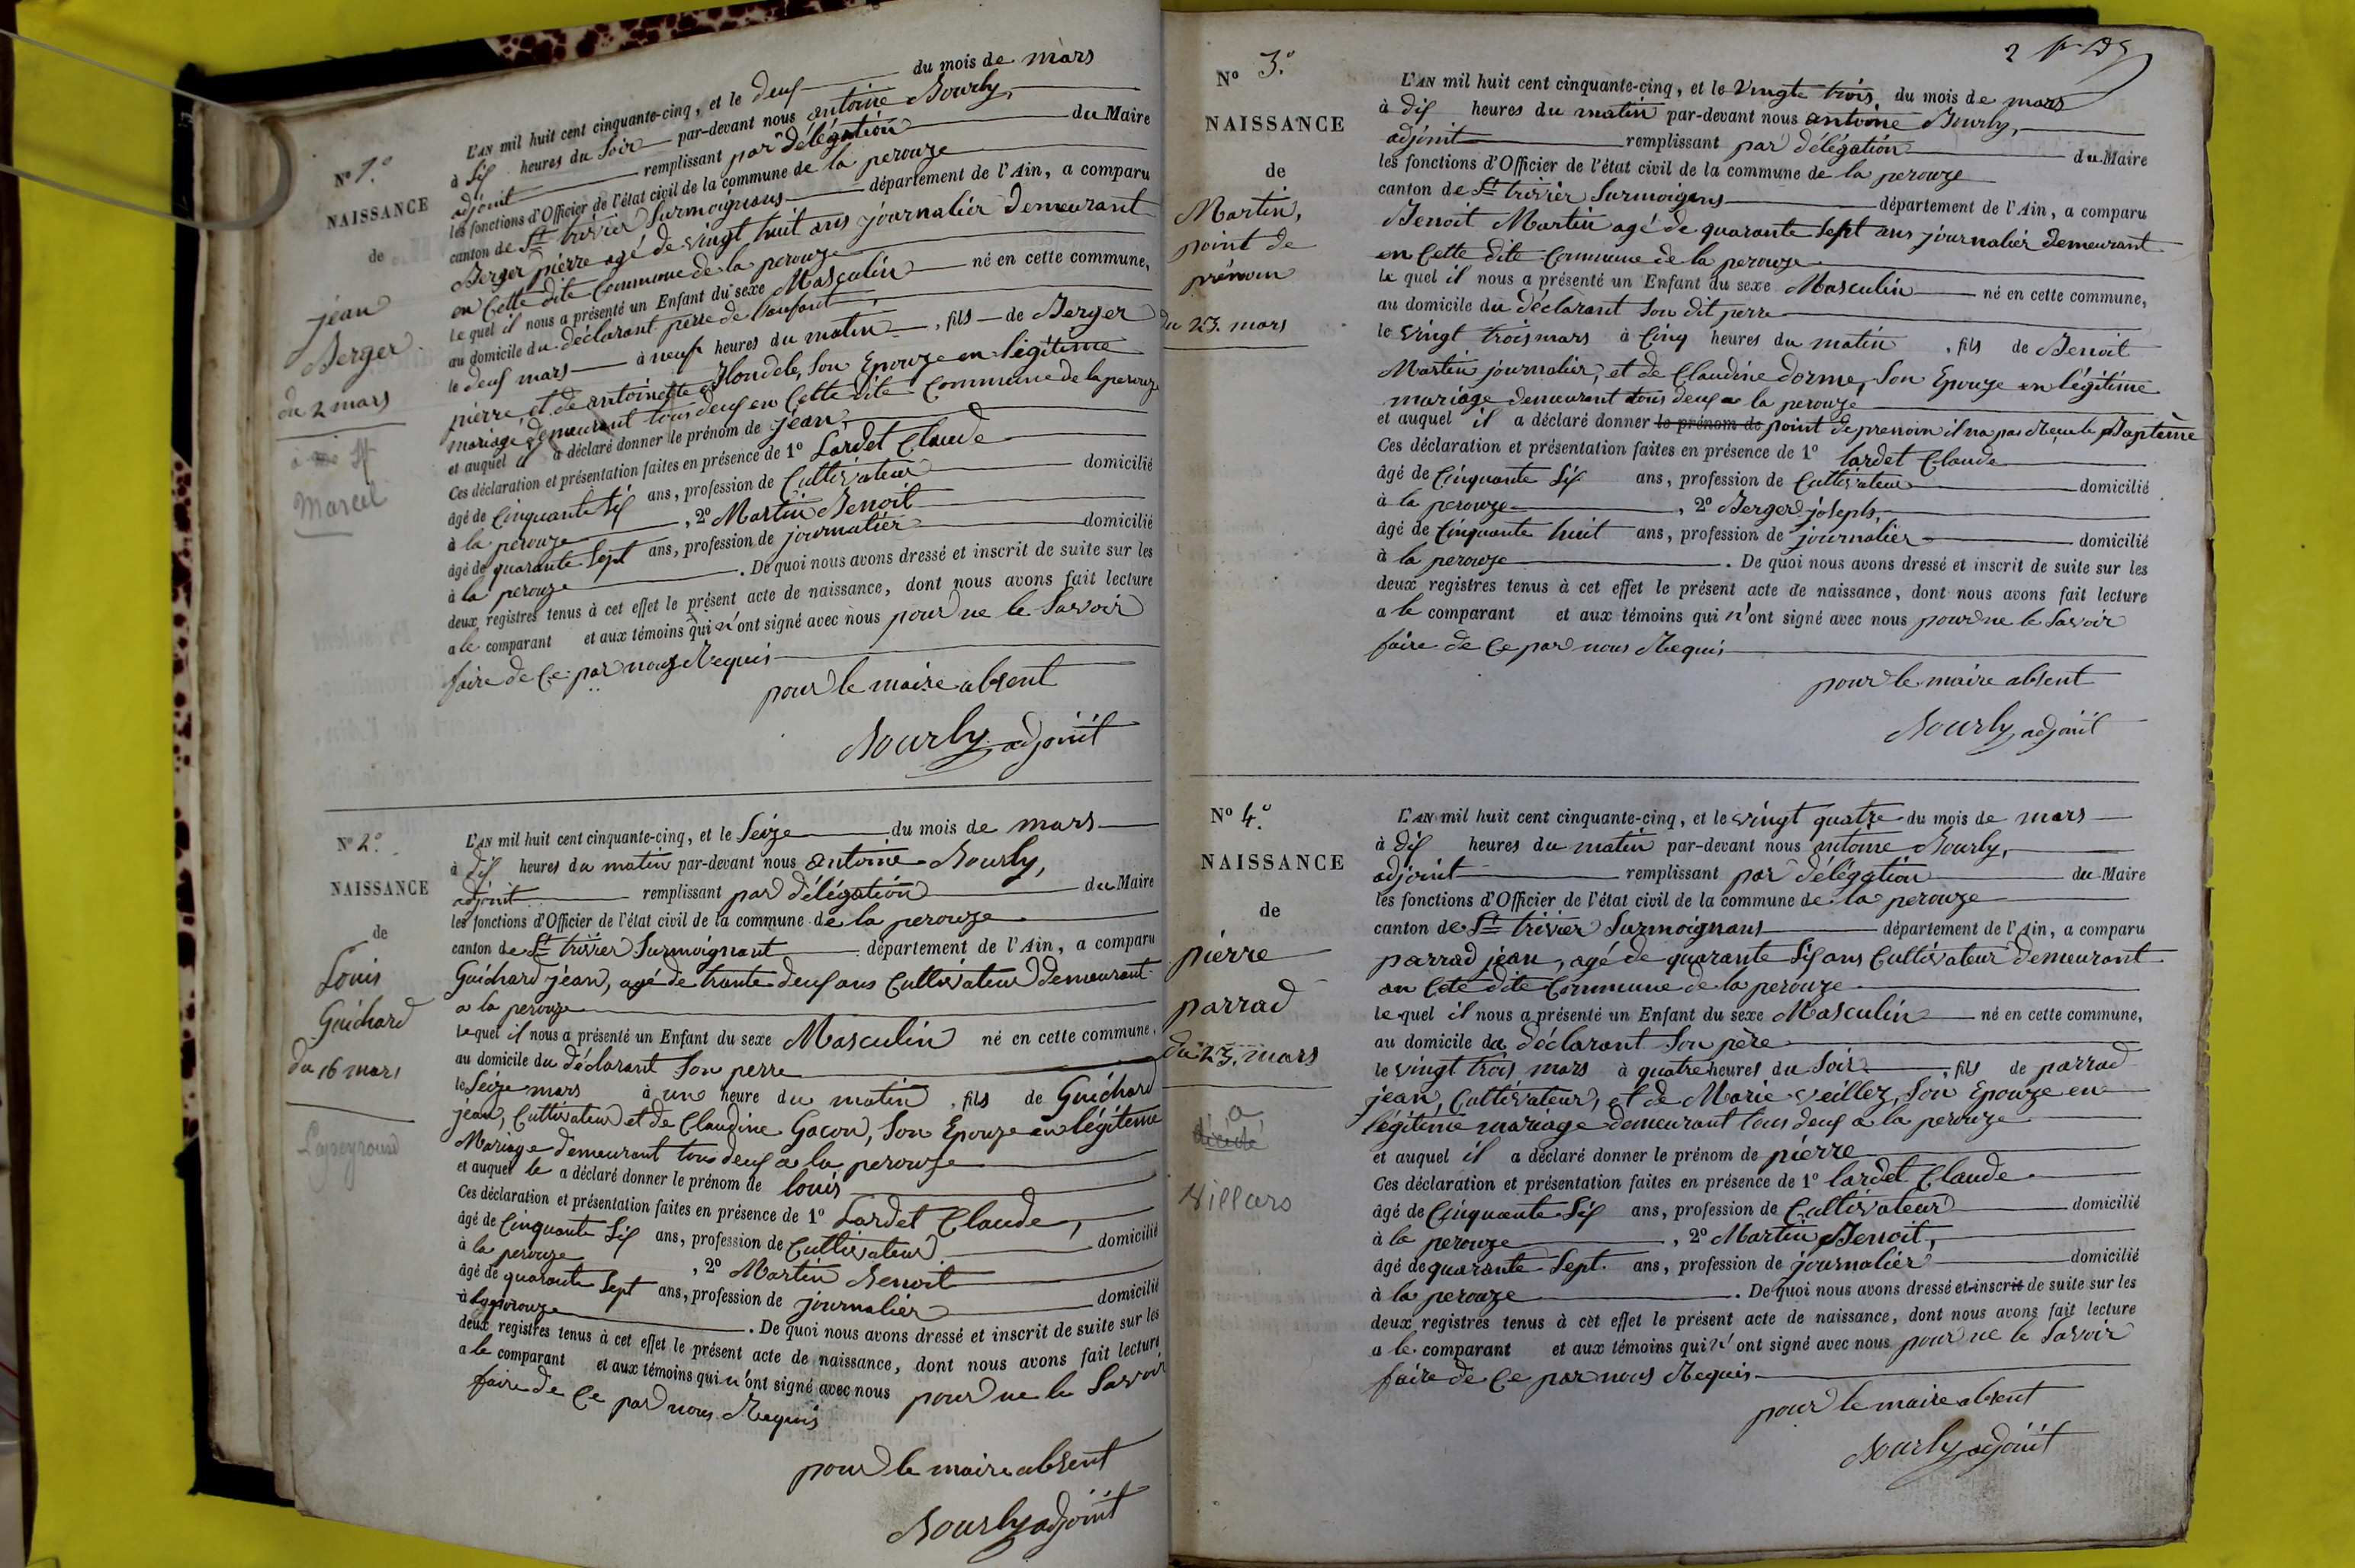 N° 1.°
NAISSANCE
de
jean
Berger
du 2 mars
à St
Marcel
L'AN mil huit cent cinquante-cinq, et le deux du mois de mars
à six heures du soir par-devant nous antoine Bourly,
adjoint remplissant par délégation du Maire
les fonctions d'Officier de l'état civil de la commune de la perouze
canton de St trivier Surmoignans département de l'Ain, a comparu
Berger pierre agé de vingt huit ans journalier Demeurant
en Cette dite Commune de la perouze
Le quel il nous a présenté un Enfant du sexe Masculin né en cette commune,
au domicile du déclarant perre de l'anfant
le deux mars à neuf heures du matin, fils de Berger
pierre et de antoinette Blondel, Son Epouze en légitime
mariage demeurant tous deux en Cette dite Commune de la perouze
et auquel il a déclaré donner le prénom de jéan
Ces déclaration et présentation faites en présence de 1° Lardet Claude
âgé de Cinquante Six ans, profession de Cultivateur domicilié
à la perouze, 2° Martin Benoit
âgé de quarante Sept ans, profession de journalier domicilié
à la perouze. De quoi nous avons dressé et inscrit de suite sur les
deux registres tenus à cet effet le présent acte de naissance, dont nous avons fait lecture
a le comparant et aux témoins qui n'ont signé avec nous pour ne le Savoir
faire de Ce par nous Requis
pour le maire absent
Bourly adjoint
N° 2.°
NAISSANCE
de
Louis
Guichard
du 16 mars
Lapeyrouse
L'AN mil huit cent cinquante-cinq, et le Seize du mois de mars
à dix heures du matin par-devant nous antoine Bourly,
adjoint remplissant par délégation du Maire
les fonctions d'Officier de l'état civil de la commune de la perouze
canton de St trivier Surmoignant département de l'Ain, a comparu
Guichard jean, agé de trante deux ans Cultivateur demeurant
a la perouze
Le quel il nous a présenté un Enfant du sexe Masculin né en cette commune,
au domicile du déclarant Son perre
le Seize mars à une heure du matin, fils de Guichard
jean, Cultivateur et de Claudine Gacon, Son Epouze en légitime
Mariage demeurant tous deux a la perouze
et auquel le a déclaré donner le prénom de louis
Ces déclaration et présentation faites en présence de 1° Lardet Claude,
âgé de Cinquante Six ans, profession de Cultivateur domicilié
à la perouze, 2° Martin Benoit
âgé de quarante Sept ans, profession de journalier domicilié
à la perouze. De quoi nous avons dressé et inscrit de suite sur les
deux registres tenus à cet effet le présent acte de naissance, dont nous avons fait lecture
a le comparant et aux témoins qui n'ont signé avec nous pour ne le Savoir
faire de Ce par nous Requis
pour le maire absent
Bourly adjoint
2
N° 3.°
NAISSANCE
de
Martin,
point de
prénom
du 23. mars
L'AN mil huit cent cinquante-cinq, et le Vingte trois, du mois de mars
à dix heures du matin par-devant nous antoine Bourly,
adjoint remplissant par délégation du Maire
les fonctions d'Officier de l'état civil de la commune de la perouze
canton de St trivier Surmoigans département de l'Ain, a comparu
Benoit Martin agé de quarante Sept ans journalier demeurant
en Cette dite Commune de la perouze
Le quel il nous a présenté un Enfant du sexe Masculin né en cette commune,
au domicile du déclarant Son dit perre
le vingt trois mars à Cinq heures du matin, fils de Benoit
Martin journalier, et de Claudine dorme, Son Epouze en légitime
mariage demeurant tous deux a la perouze
et auquel il a déclaré donner le prénom de point de prenom il na pas Reçu le Baptème
Ces déclaration et présentation faites en présence de 1° lardet Claude
âgé de Cinquante Six ans, profession de Cultivateur domicilié
à la perouze, 2° Berger joseph,
âgé de Cinquante huit ans, profession de journalier domicilié
à la perouze. De quoi nous avons dressé et inscrit de suite sur les
deux registres tenus à cet effet le présent acte de naissance, dont nous avons fait lecture
a le comparant et aux témoins qui n'ont signé avec nous pour ne le Savoir
faire de Ce par nous Requis
pour le maire absent
Bourly adjoint
N° 4.°
NAISSANCE
de
pierre
parrad
du 23. mars
à
Villars
L'AN mil huit cent cinquante-cinq, et le vingt quatre du mois de mars
à dix heures du matin par-devant nous antoine Bourly,
adjoint remplissant par délégation du Maire
les fonctions d'Officier de l'état civil de la commune de la perouze
canton de St trivier Surmoignans département de l'Ain, a comparu
parrad jean, agé de quarante Six ans Cultivateur demeurant
an Cete dite Commune de la perouze
Le quel il nous a présenté un Enfant du sexe Masculin né en cette commune,
au domicile du déclarant Son père
le vingt trois mars à quatre heures du Soir, fils de parrad
jean, Cultivateur, et de Marie veillez, Son Epouze en
légitime mariage demeurant tous deux a la perouze
et auquel il a déclaré donner le prénom de pierre
Ces déclaration et présentation faites en présence de 1° lardet Claude
âgé de Cinquante Six ans, profession de Cultivateur domicilié
à la perouze, 2° Martin Benoit,
âgé de quarante Sept. ans, profession de journalier domicilié
à la perouze. De quoi nous avons dressé et inscrit de suite sur les
deux registres tenus à cet effet le présent acte de naissance, dont nous avons fait lecture
a le comparant et aux témoins qui n'ont signé avec nous pour ne le Savoir
faire de Ce par nous Requis
pour le maire absent
Bourly adjoint